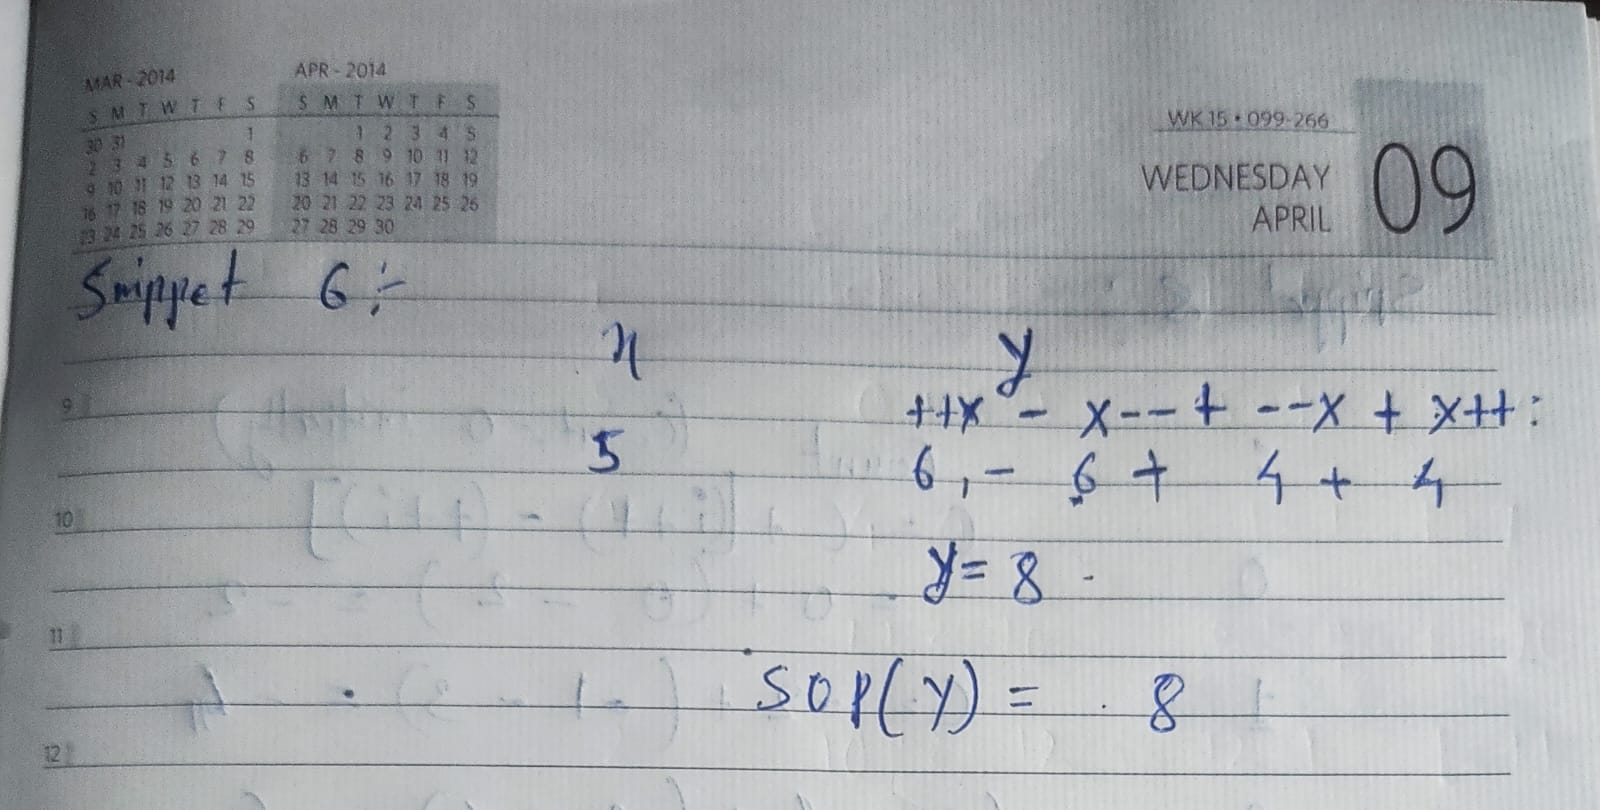 MAR - 2014
S M T W T F S
30 31 1
2 3 4 5 6 7 8
9 10 11 12 13 14 15
16 17 18 19 20 21 22
23 24 25 26 27 28 29
APR - 2014
S M T W T F S
1 2 3 4 5
6 7 8 9 10 11 12
13 14 15 16 17 18 19
20 21 22 23 24 25 26
27 28 29 30
WK 15 • 099-266
WEDNESDAY
APRIL
09
Snippet 6 :-
x y
++x - x-- + --x + x++ :
9
5 6, - 6 + 4 + 4
10
y = 8
11
SOP(y) = 8
12